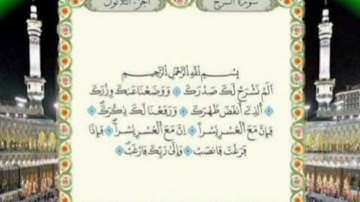 سورة الشرح
الجزء الثلاثون
بِسْمِ اللَّهِ الرَّحْمَٰنِ الرَّحِيمِ
أَلَمْ نَشْرَحْ لَكَ صَدْرَكَ ١ وَوَضَعْنَا عَنكَ وِزْرَكَ
٢ الَّذِي أَنقَضَ ظَهْرَكَ ٣ وَرَفَعْنَا لَكَ ذِكْرَكَ ٤
فَإِنَّ مَعَ الْعُسْرِ يُسْرًا ٥ إِنَّ مَعَ الْعُسْرِ يُسْرًا ٦ فَإِذَا
فَرَغْتَ فَانصَبْ ٧ وَإِلَىٰ رَبِّكَ فَارْغَب ٨